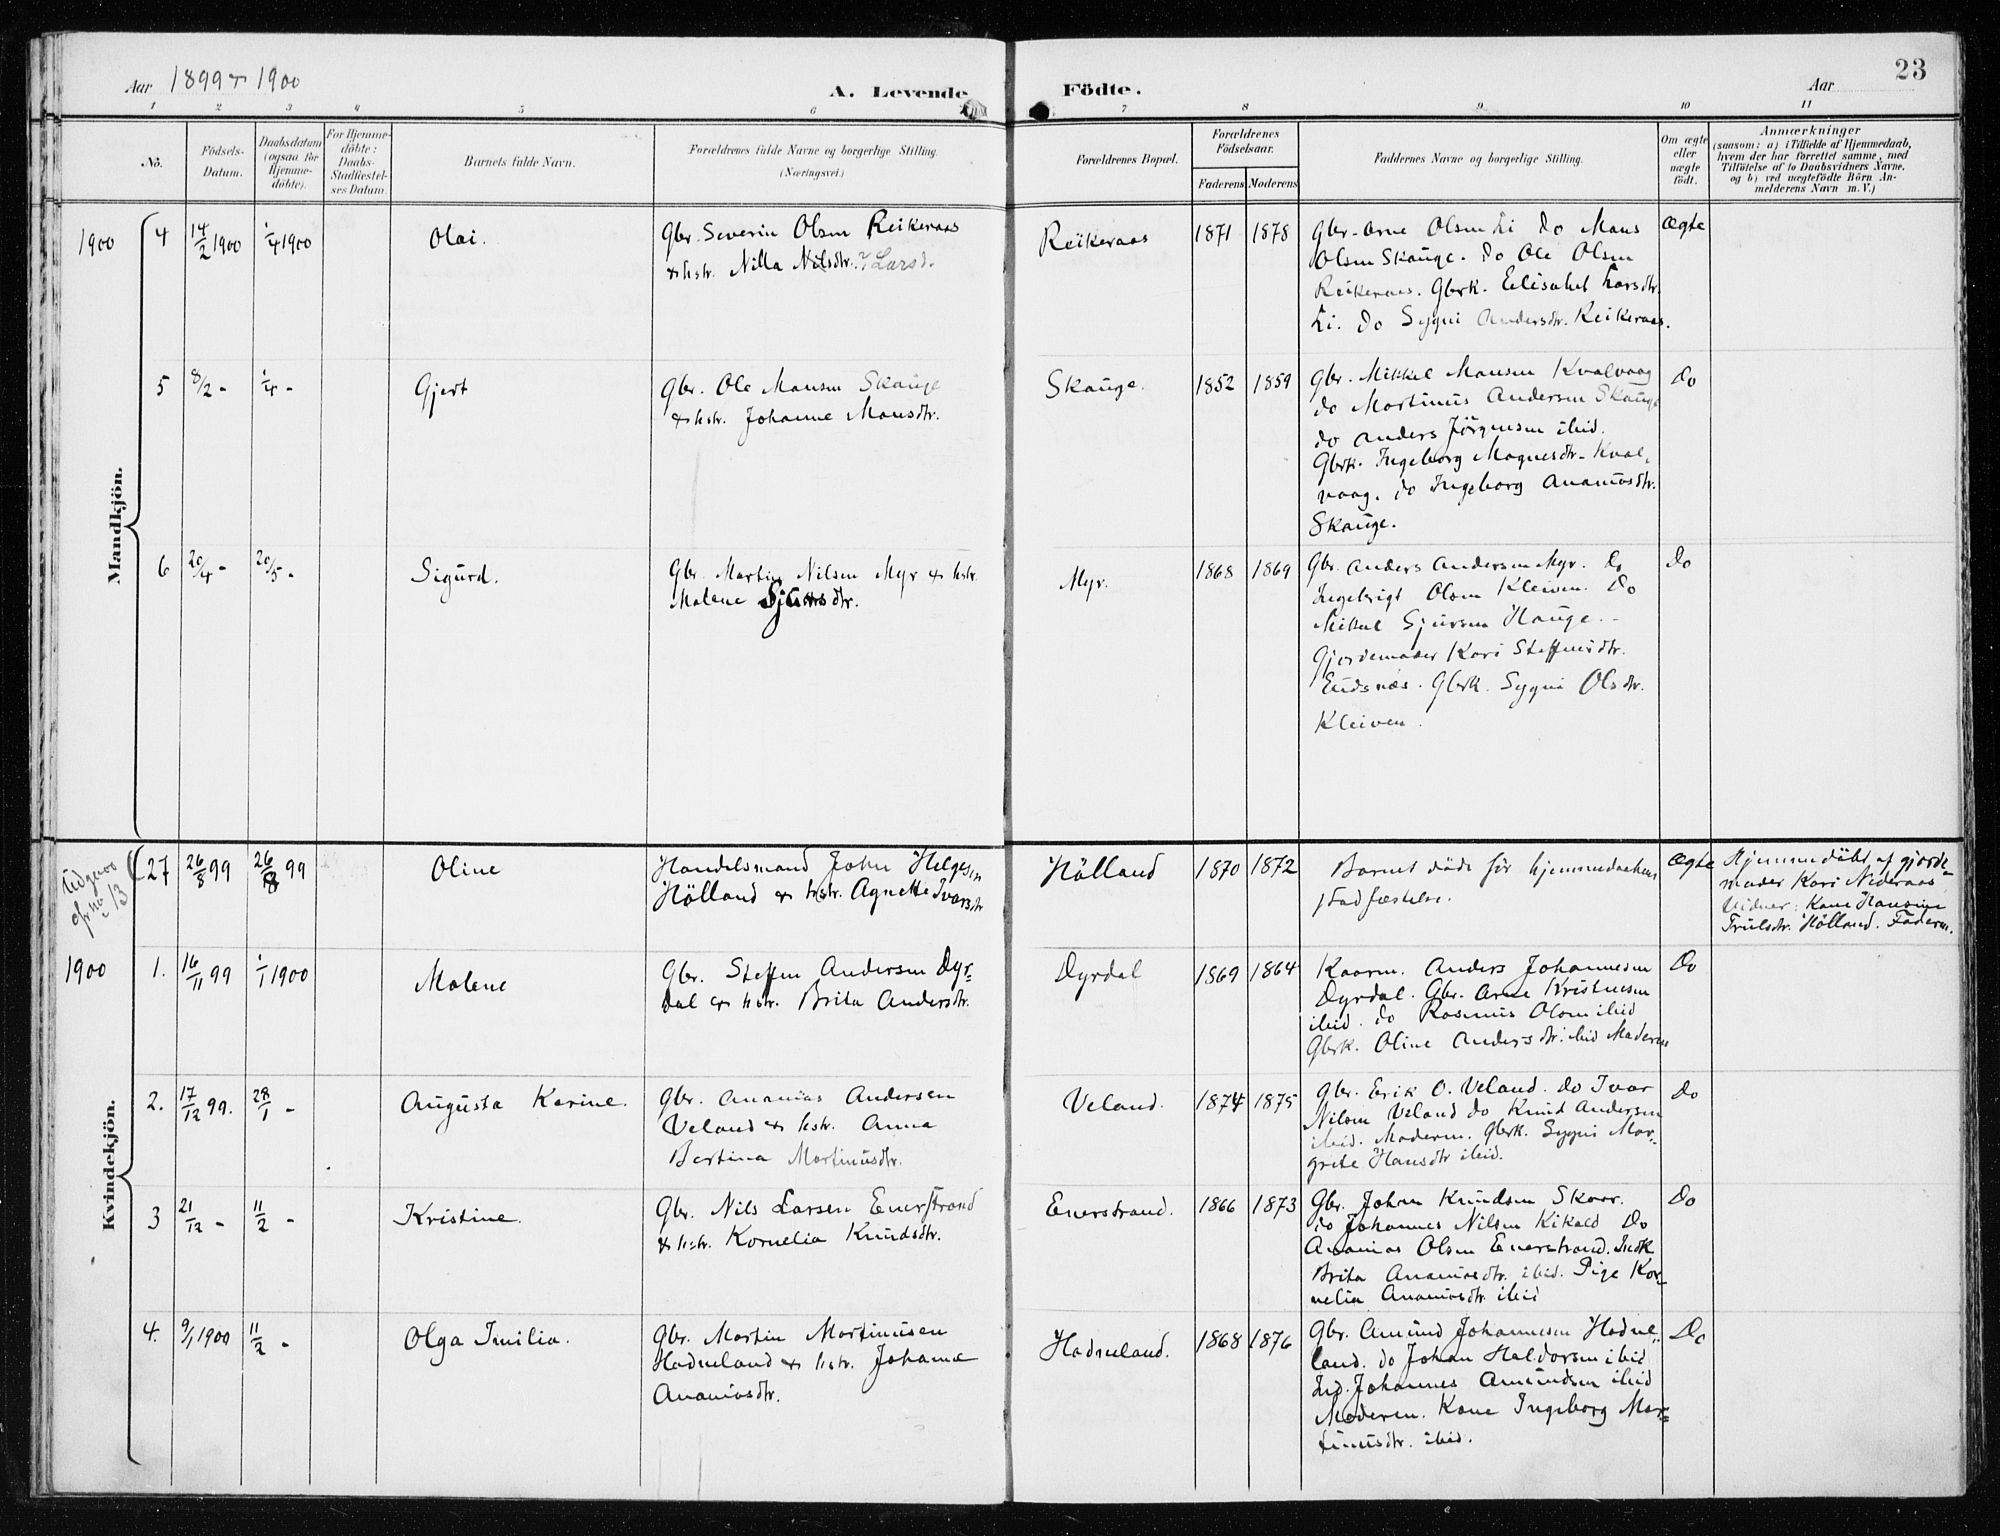 Aar 1899 + 1900
A. Levende
Födte.
Aar
23
1 2 3 4 5 6 7 8 9 10 11
Nö.
Födsels-
Datum.
Daabsdatum
(ogsaa for
Hjemme-
döbte).
For Hjemme-
döbte:
Daabs-
Stadfæstel-
ses Datum.
Barnets fulde Navn.
Forældrenes fulde Navne og borgerlige Stilling.
(Næringsvei.)
Forældrenes Bopæl.
Forældrenes
Födselsaar.
Faderens Moderens
Faddernes Navne og borgerlige Stilling.
Om ægte
eller
uægte
födt.
Anmærkninger
(saasom: a) i Tilfælde af Hjemmedaab,
hvem der har forrettet samme, med
Tilföielse af to Daabsvidners Navne,
og b) ved uægtefödte Börn An-
melderens Navn m. V.)
Mandkjön.
1900 4 14/2 1900 1/4 1900 Olai.
Gbr. Severin Olsen Reikeraas
& hstr. Nilla Nilsdtr. ? Larsd.
Reikeraas 1871 1878
Gbr. Arne Olsen Li do Mons
Olsen Skauge. do Ole Olsen
Reikeraas. Gbrk. Elisabet Larsdtr.
Li. do Sygni Andersdtr. Reikeraas.
Ægte
5 8/2 - 1/4 - Gjert
Gbr. Ole Monsen Skauge
& hstr. Johanne Monsdtr.
Skauge. 1852 1859
Gbr. Mikkel Monsen Kvalvaag
do Martinus Andersen Skauge
do Anders Jörgensen ibid.
Gbrk. Ingeborg Magnesdtr. Kval-
vaag. do Ingeborg Ananiasdtr.
Skauge.
Do
6 20/4 - 20/5 - Sigurd.
Gbr. Martin Nilsen Myr & hstr.
Malene Sjursdtr.
Myr. 1868 1869
Gbr. Anders Andersen Myr. Do
Ingebrigt Olsen Kleiven. Do
Mikal Sjursen Hauge.
Gjordemoder Kari Steffensdtr.
Eidsnæs. Gbrk. Sygni Olsdtr.
Kleiven.
Do
Kvindekjön.
27 26/8 99 26/8 99 Oline
Handelsmand John Helgesen
Hölland & hstr. Agnethe Ivarsdtr
Hölland 1870 1872
Barnet döde för hjemmedaabens
stadfæstelse.
Ægte
Hjemmedöbt af gjorde-
moder Kari Nederaas
Vidner: Kone Hansine
Trulsdtr. Hölland. Faderen.
1900 1. 16/11 99 1/1 1900 Malene
Gbr. Steffen Andersen Dyr-
dal & hstr. Brita Andersdtr.
Dyrdal 1869 1864
Kaarm. Anders Johannesen
Dyrdal. Gbr. Arne Kristensen
ibid. do Rasmus Olsen ibid
Gbrk. Oline Andersdtr. ibid Moderen
Do
2. 17/12 99. 28/1 - Augusta Karine.
Gbr. Ananias Andersen
Veland & hstr. Anna
Bertina Martinusdtr.
Veland. 1874 1875
Gbr. Erik O. Veland. do Ivar
Nilsen Veland do Knud Andersen
ibid. Moderen. Gbrk. Sygni Mar-
grete Hansdtr ibid.
Do
3 21/12 - 11/2 - Kristine.
Gbr. Nils Larsen Enerstrand
& hstr. Kornelia Knudsdtr.
Enerstrand. 1866 1873
Gbr. Johan Knudsen Skaar.
do Johannes Nilsen Kikald Do
Ananias Olsen Enerstrand. Indk
Brita Ananiasdtr. ibid. Pige Kor-
nelia Ananiasdtr ibid
Do
4. 9/1 1900 11/2 - Olga Imilia.
Gbr. Martin Martinusen
Hodneland & hstr. Johana
Ananiasdtr.
Hodneland. 1868 1876
Gbr. Amund Johannesen Hodne-
land. do Johan Haldorsen ibid
Ind. Johannes Amundsen ibid
Moderen. Kone Ingeborg Mar-
tinusdtr. ibid.
Do